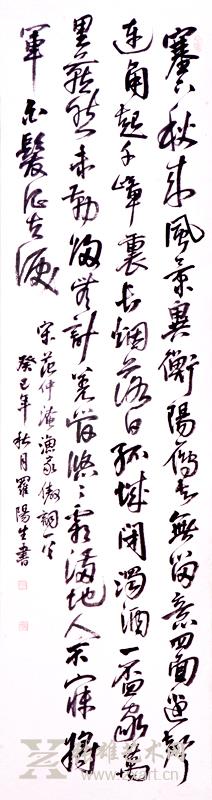 塞下秋來風景異衡陽雁去無留意四面邊聲
連角起千嶂裏長烟落日孤城閉濁酒一盃家萬
里燕然未勒歸無計羌管悠〻霜滿地人不寐將
軍白髮征夫淚
宋范仲淹漁家傲詞一首
癸巳年秋月羅陽生書